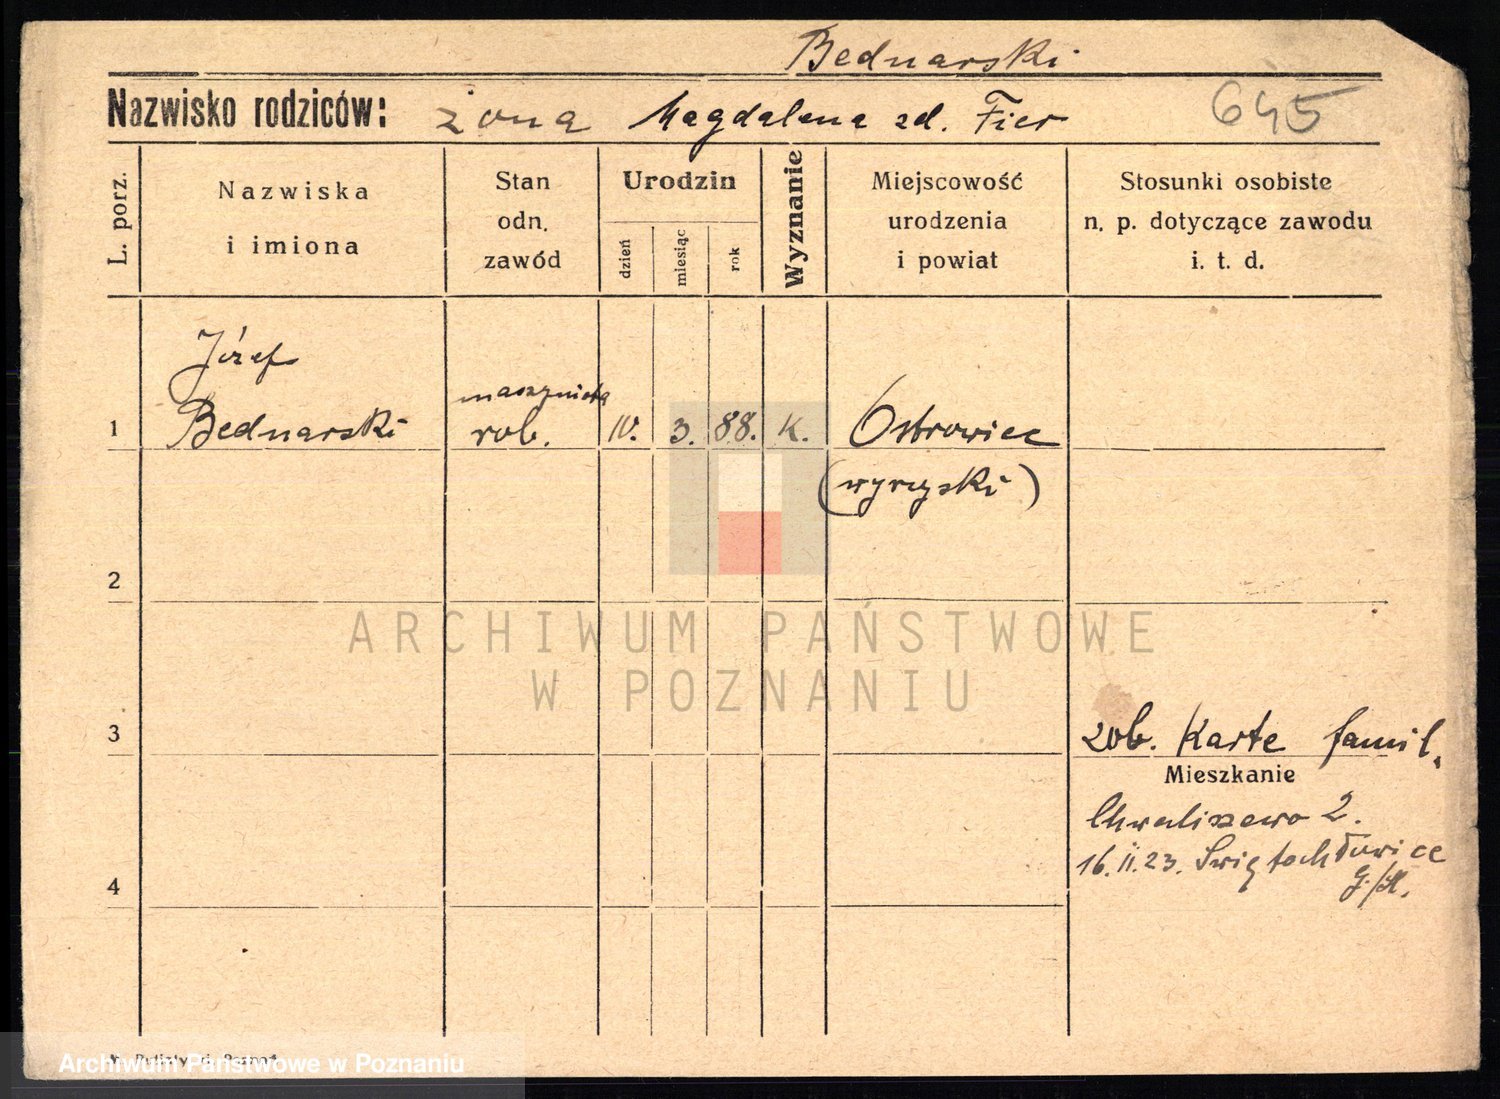 Bednarski
Nazwisko rodziców: żona Magdalena zd. Fier
645
L. porz.
Nazwiska
i imiona
Stan
odn.
zawód
Urodzin
dzień
miesiąc
rok
Wyznanie
Miejscowość
urodzenia
i powiat
Stosunki osobiste
n. p. dotyczące zawodu
i. t. d.
Józef
maszynista
1 Bednarski rob. IV. 3. 88. K. Ostrowiec
(wyrzyski)
2
ARCHIWUM PAŃSTWOWE
W POZNANIU
3
zob. Karte famil.
Mieszkanie
Chwaliszewo 2.
16.II.23. Świętochłowice
G./Śl.
4
Archiwum Państwowe w Poznaniu